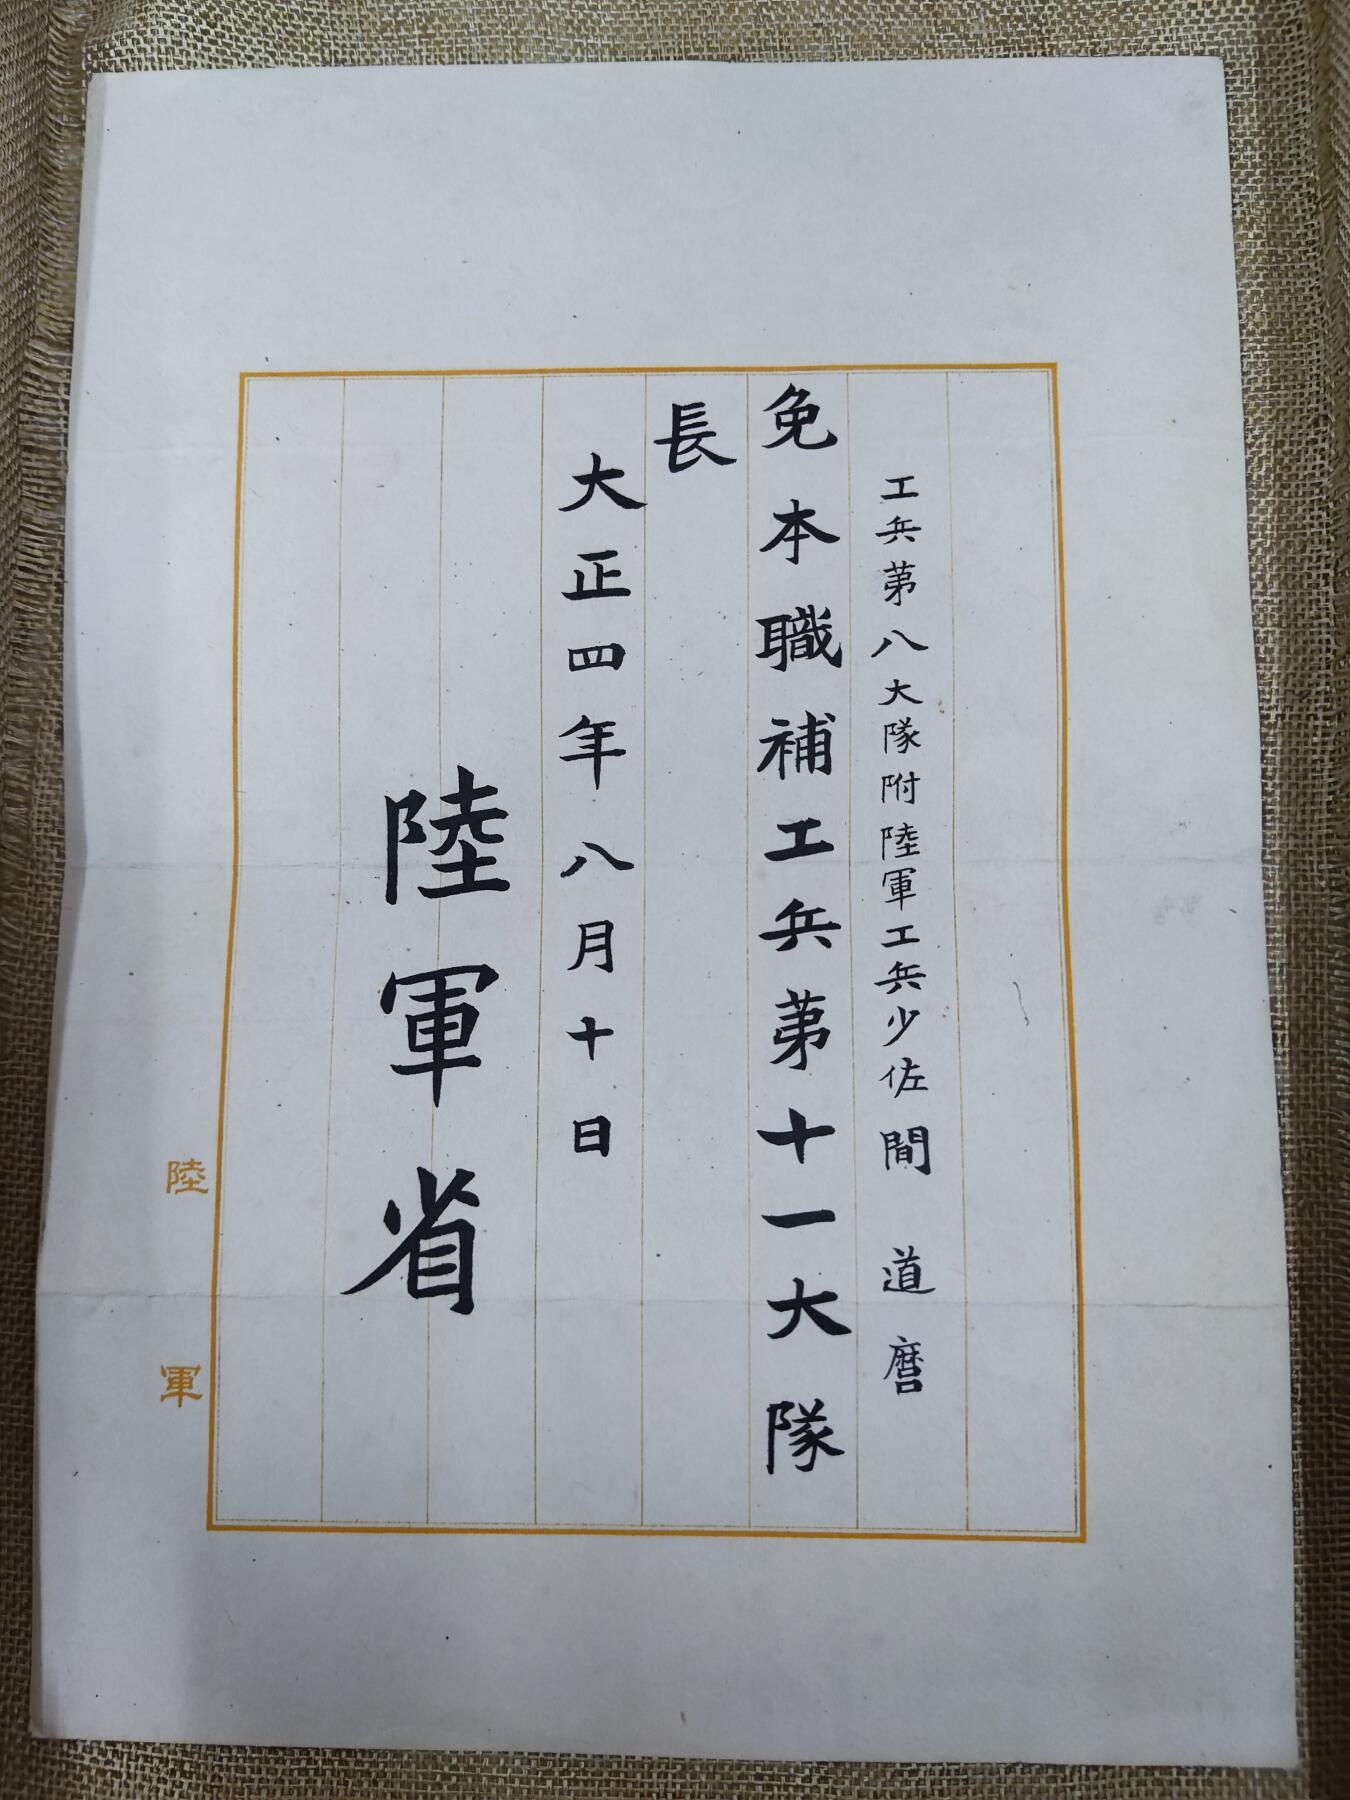 工兵第八大隊附陸軍工兵少佐間道麿
免本職補工兵第十一大隊
長
大正四年八月十日
陸軍省
陸軍